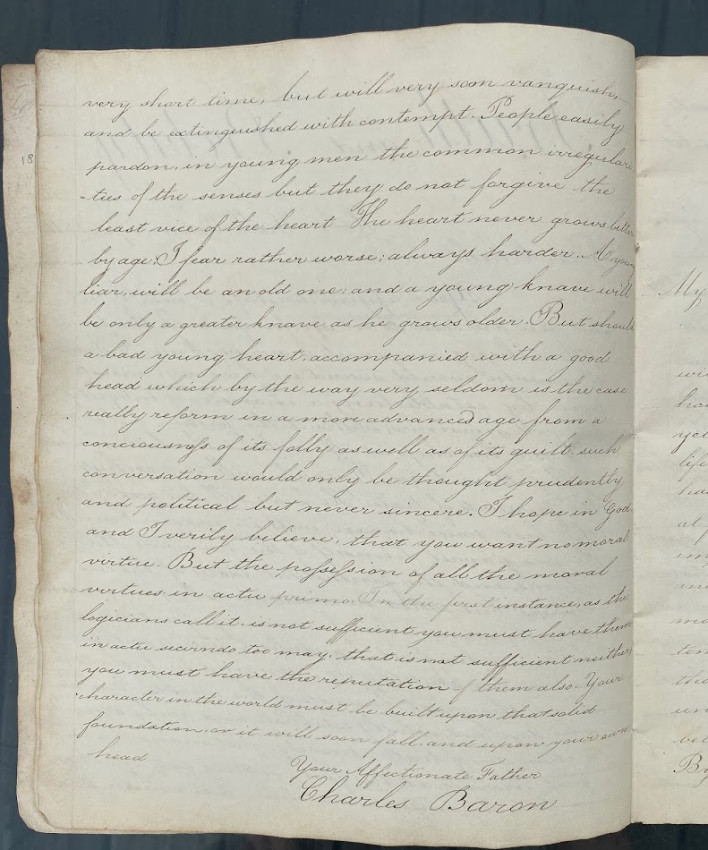 very short time, but will very soon vanquish,
and be extinguished with contempt. People easily
pardon, in young men the common irregulare
-ties of the senses but they do not forgive the
least vice of the heart The heart never grows better
by age: I fear rather worse; always harder. A young
liar, will be an old one: and a young knave will
be only a greater knave as he grows older. But should
a bad young heart, accompanied with a good
head which by the way very seldom is the case
really reform in a more advanced age from a
conciousness of its folly as well as of its guilt such
conversation would only be thought prudently
and political but never sincere. I hope in God,
and I verily believe, that you want no moral
virtue. But the possession of all the moral
virtues in actu primo. In the first instance, as the
logicians call it. is not sufficient you must have them
in actu secirndo too may. that is not sufficient neither
you must have the reputation of them also. Your
character in the world must be built upon that solid
foundation, or it will soon fall and upon your own
head
Your Affectionate Father
Charles Baron
18
My
yet
life
By